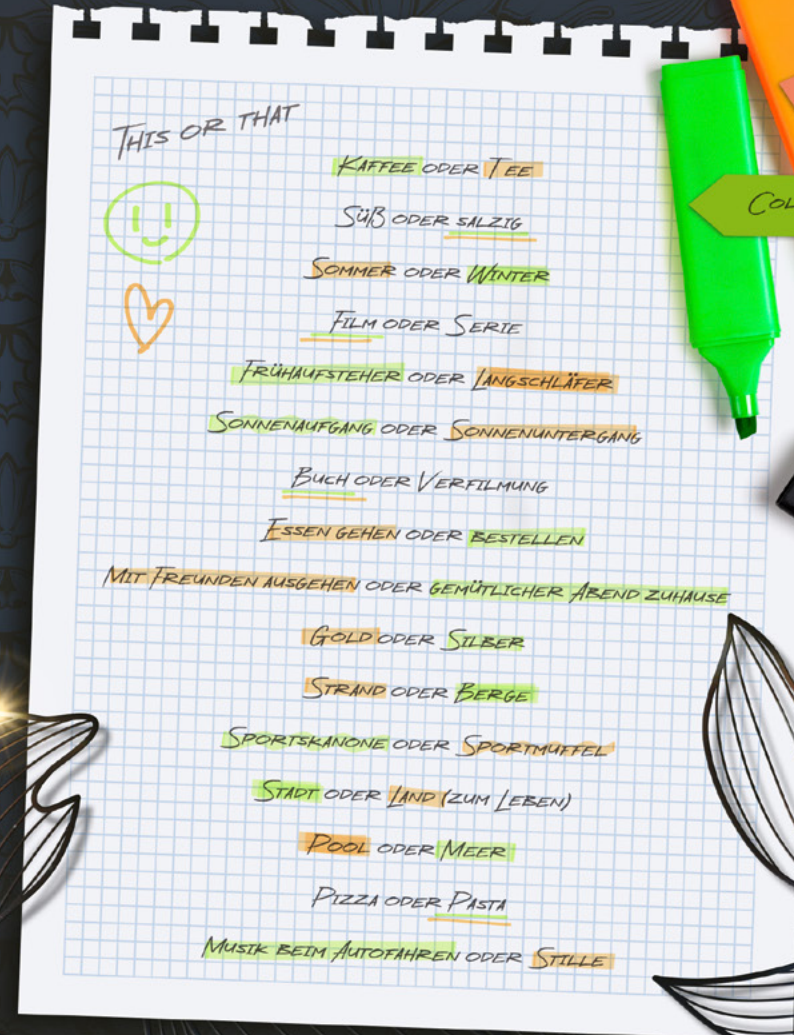 THIS OR THAT
KAFFEE ODER TEE
SÜß ODER SALZIG
SOMMER ODER WINTER
FILM ODER SERIE
FRÜHAUFSTEHER ODER LANGSCHLÄFER
SONNENAUFGANG ODER SONNENUNTERGANG
BUCH ODER VERFILMUNG
ESSEN GEHEN ODER BESTELLEN
MIT FREUNDEN AUSGEHEN ODER GEMÜTLICHER ABEND ZUHAUSE
GOLD ODER SILBER
STRAND ODER BERGE
SPORTSKANONE ODER SPORTMUFFEL
STADT ODER LAND (ZUM LEBEN)
POOL ODER MEER
PIZZA ODER PASTA
MUSIK BEIM AUTOFAHREN ODER STILLE